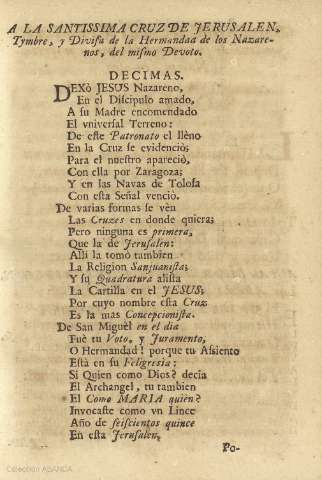 A LA SANTISSIMA CRUZ DE JERUSALEN,
Tymbre, y Divisa de la Hermandad de los Nazare-
nos, del mismo Devoto.
DECIMAS.
DEXò JESUS Nazareno,
En el Discipulo amado,
A su Madre encomendado
El vniversal Terreno:
De este Patronato el llèno
En la Cruz se evidenciò;
Para el nuestro apareciò,
Con ella por Zaragoza;
Y en las Navas de Tolosa
Con esta Señal venciò.
De varias formas se vèn
Las Cruzes en donde quiera;
Pero ninguna es primera,
Que la de Jerusalen:
Alli la tomò tambien
La Religion Sanjuanista;
Y su Quadratura alista
La Cartilla en el JESUS,
Por cuyo nombre esta Cruz
Es la mas Concepcionista.
De San Miguèl en el dia
Fuè tu Voto, y Juramento,
O Hermandad! porque tu Assiento
Està en su Feligresia:
Si Quien como Dios? decia
El Archangel, tu tambien
El Como MARIA quien?
Invocaste como vn Lince
Año de seiscientos quince
En esta Jerusalen.
Po-
Colección ABANCA